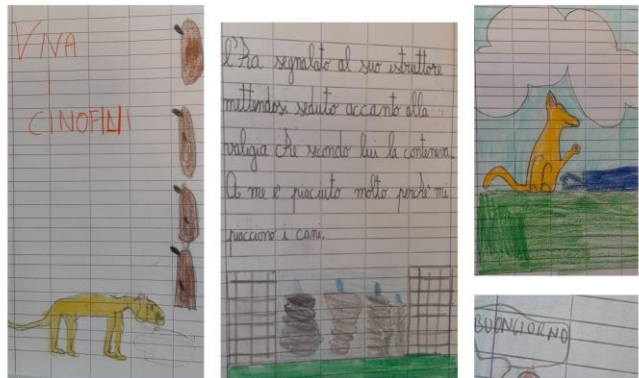 VIVA
I
CINOFILI
l'ha segnalato al suo istruttore
mettendosi seduto accanto alla
valigia che secondo lui la conteneva.
A me è piaciuto molto perchè mi
piacciono i cani.
BUONGIORNO